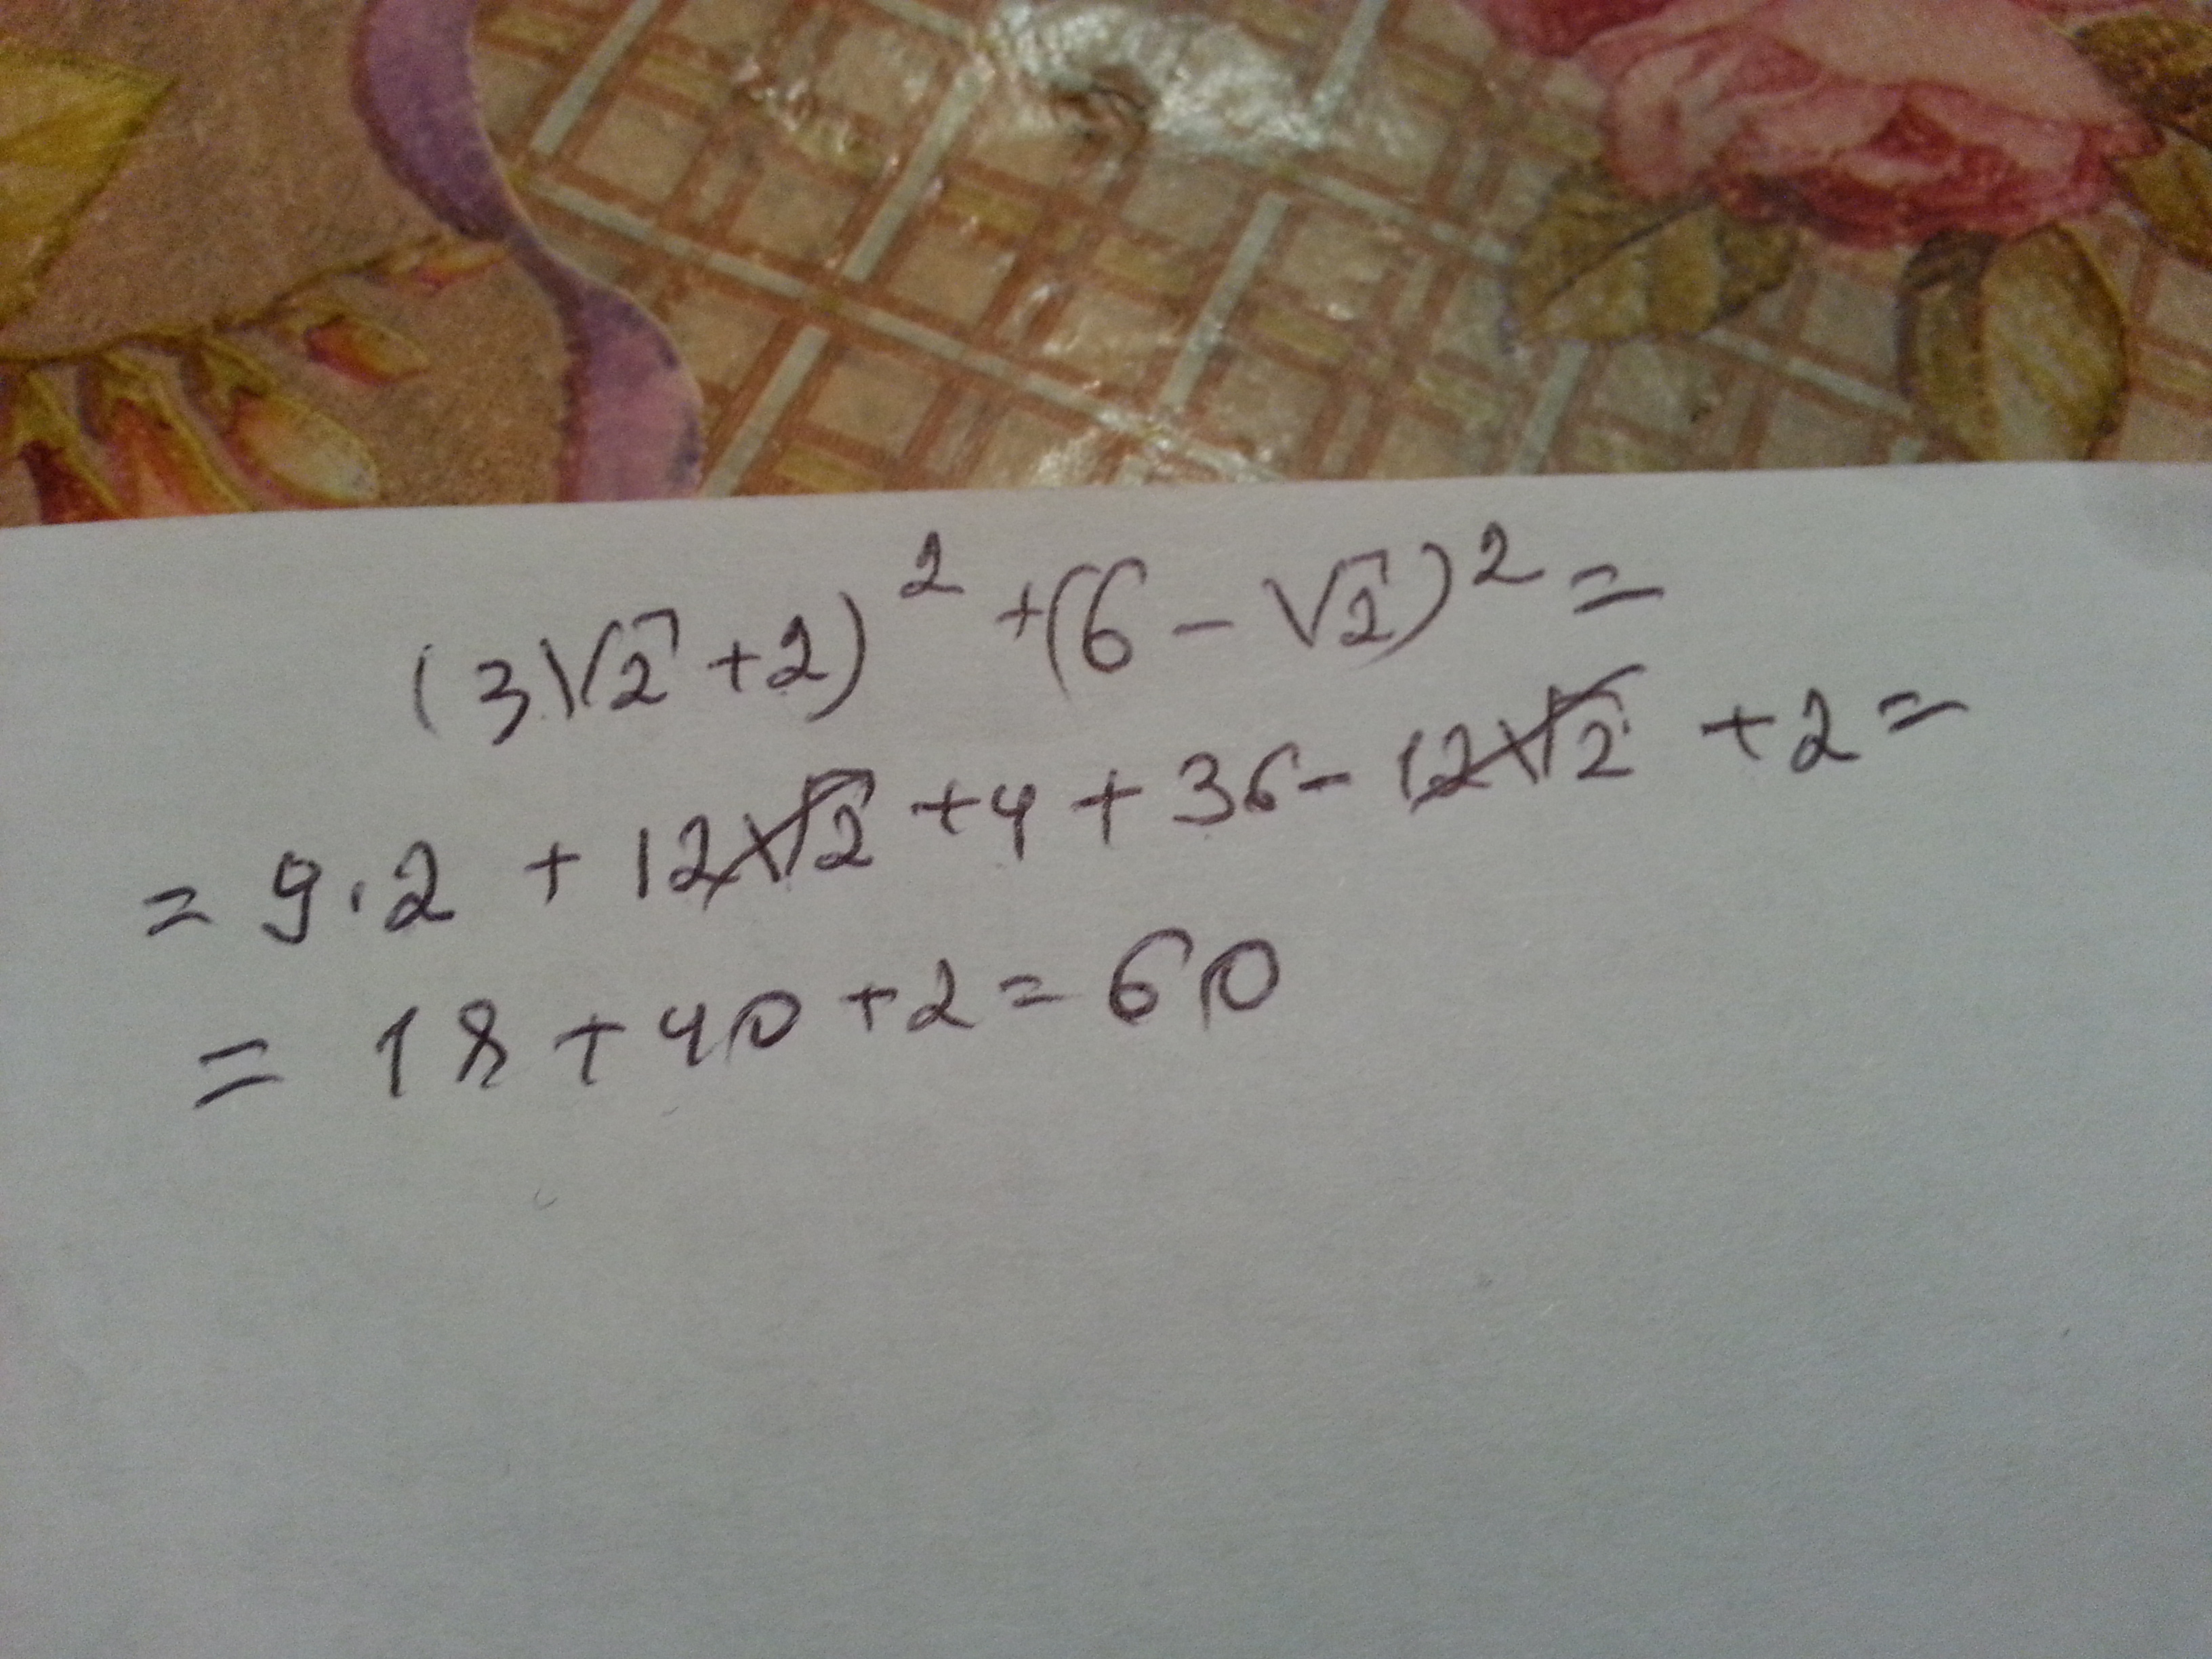 (3√2 +2)² +(6 - √2)² =
= 9·2 + 12√2 +4 + 36 - 12√2 +2 =
= 18 + 40 +2 = 60